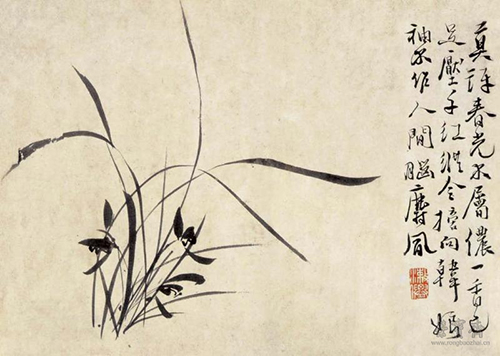 莫訝春光不屬儂一香已
足壓千紅總令摘向韓娘
袖不作人間腦麝風
www.rongbaozhai.cn